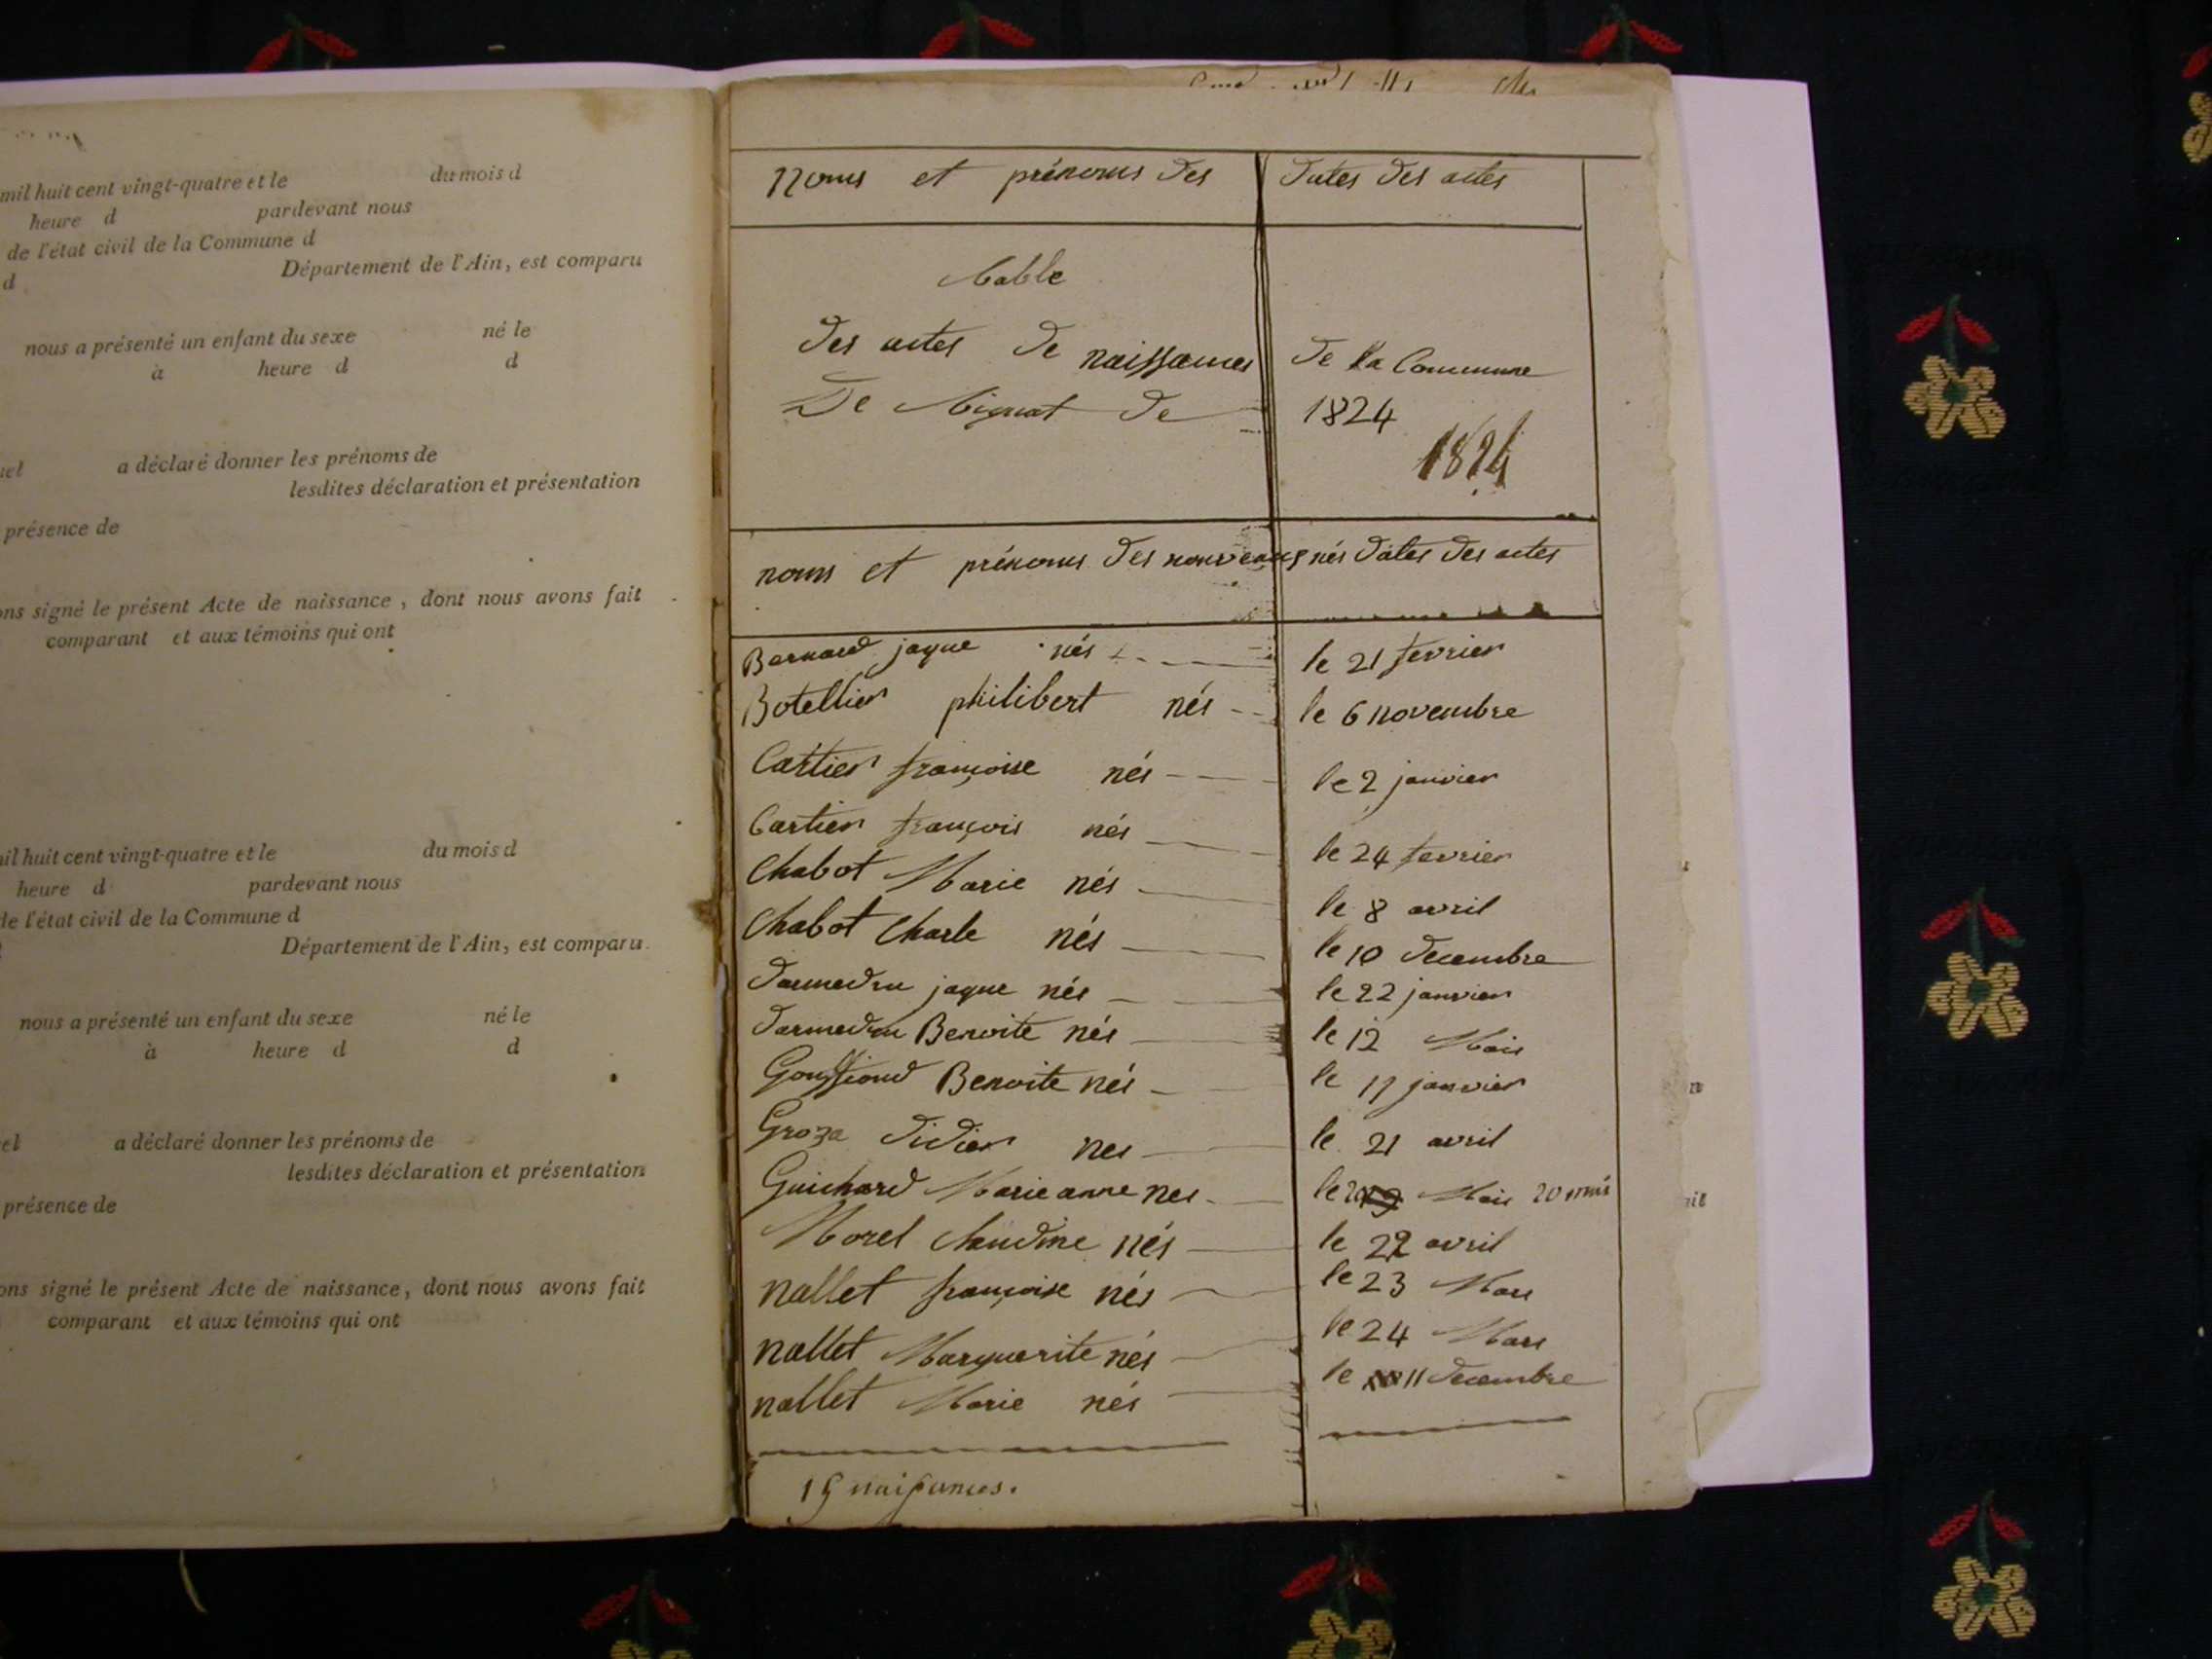 mil huit cent vingt-quatre et le du mois d
heure d pardevant nous
de l'état civil de la Commune d
d Département de l'Ain, est comparu
nous a présenté un enfant du sexe né le
à heure d d
uel a déclaré donner les prénoms de
lesdites déclaration et présentation
présence de
ons signé le présent Acte de naissance, dont nous avons fait
comparant et aux témoins qui ont
mil huit cent vingt-quatre et le du mois d
heure d pardevant nous
de l'état civil de la Commune d
Département de l'Ain, est comparu
nous a présenté un enfant du sexe né le
à heure d d
el a déclaré donner les prénoms de
lesdites déclaration et présentation
présence de
ons signé le présent Acte de naissance, dont nous avons fait
comparant et aux témoins qui ont
Noms et prénoms des dates des actes
table
des actes de naissances de la Commune
De de 1824
1824
noms et prénoms des nouveaux nés dates des actes
Bernard jaque nés le 21 fevrier
Botellier philibert nés le 6 novembre
Cartier françoise nés le 2 janvier
Cartier françois nés le 24 fevrier
Chabot Marie nés le 8 avril
Chabot Charle nés le 10 decembre
jaque nés le 22 janvier
Benoite nés le 12 Mais
Benoite nés le 11 janvier
Groza didier nes le 21 avril
Guichard Marie anne nes le 20 Mais 20 mai
Morel Claudine nés le 22 avril
nallet françoise nés le 23 Mars
nallet Marguerite nés le 24 Mars
nallet Marie nés le 11 decembre
15 naissances.